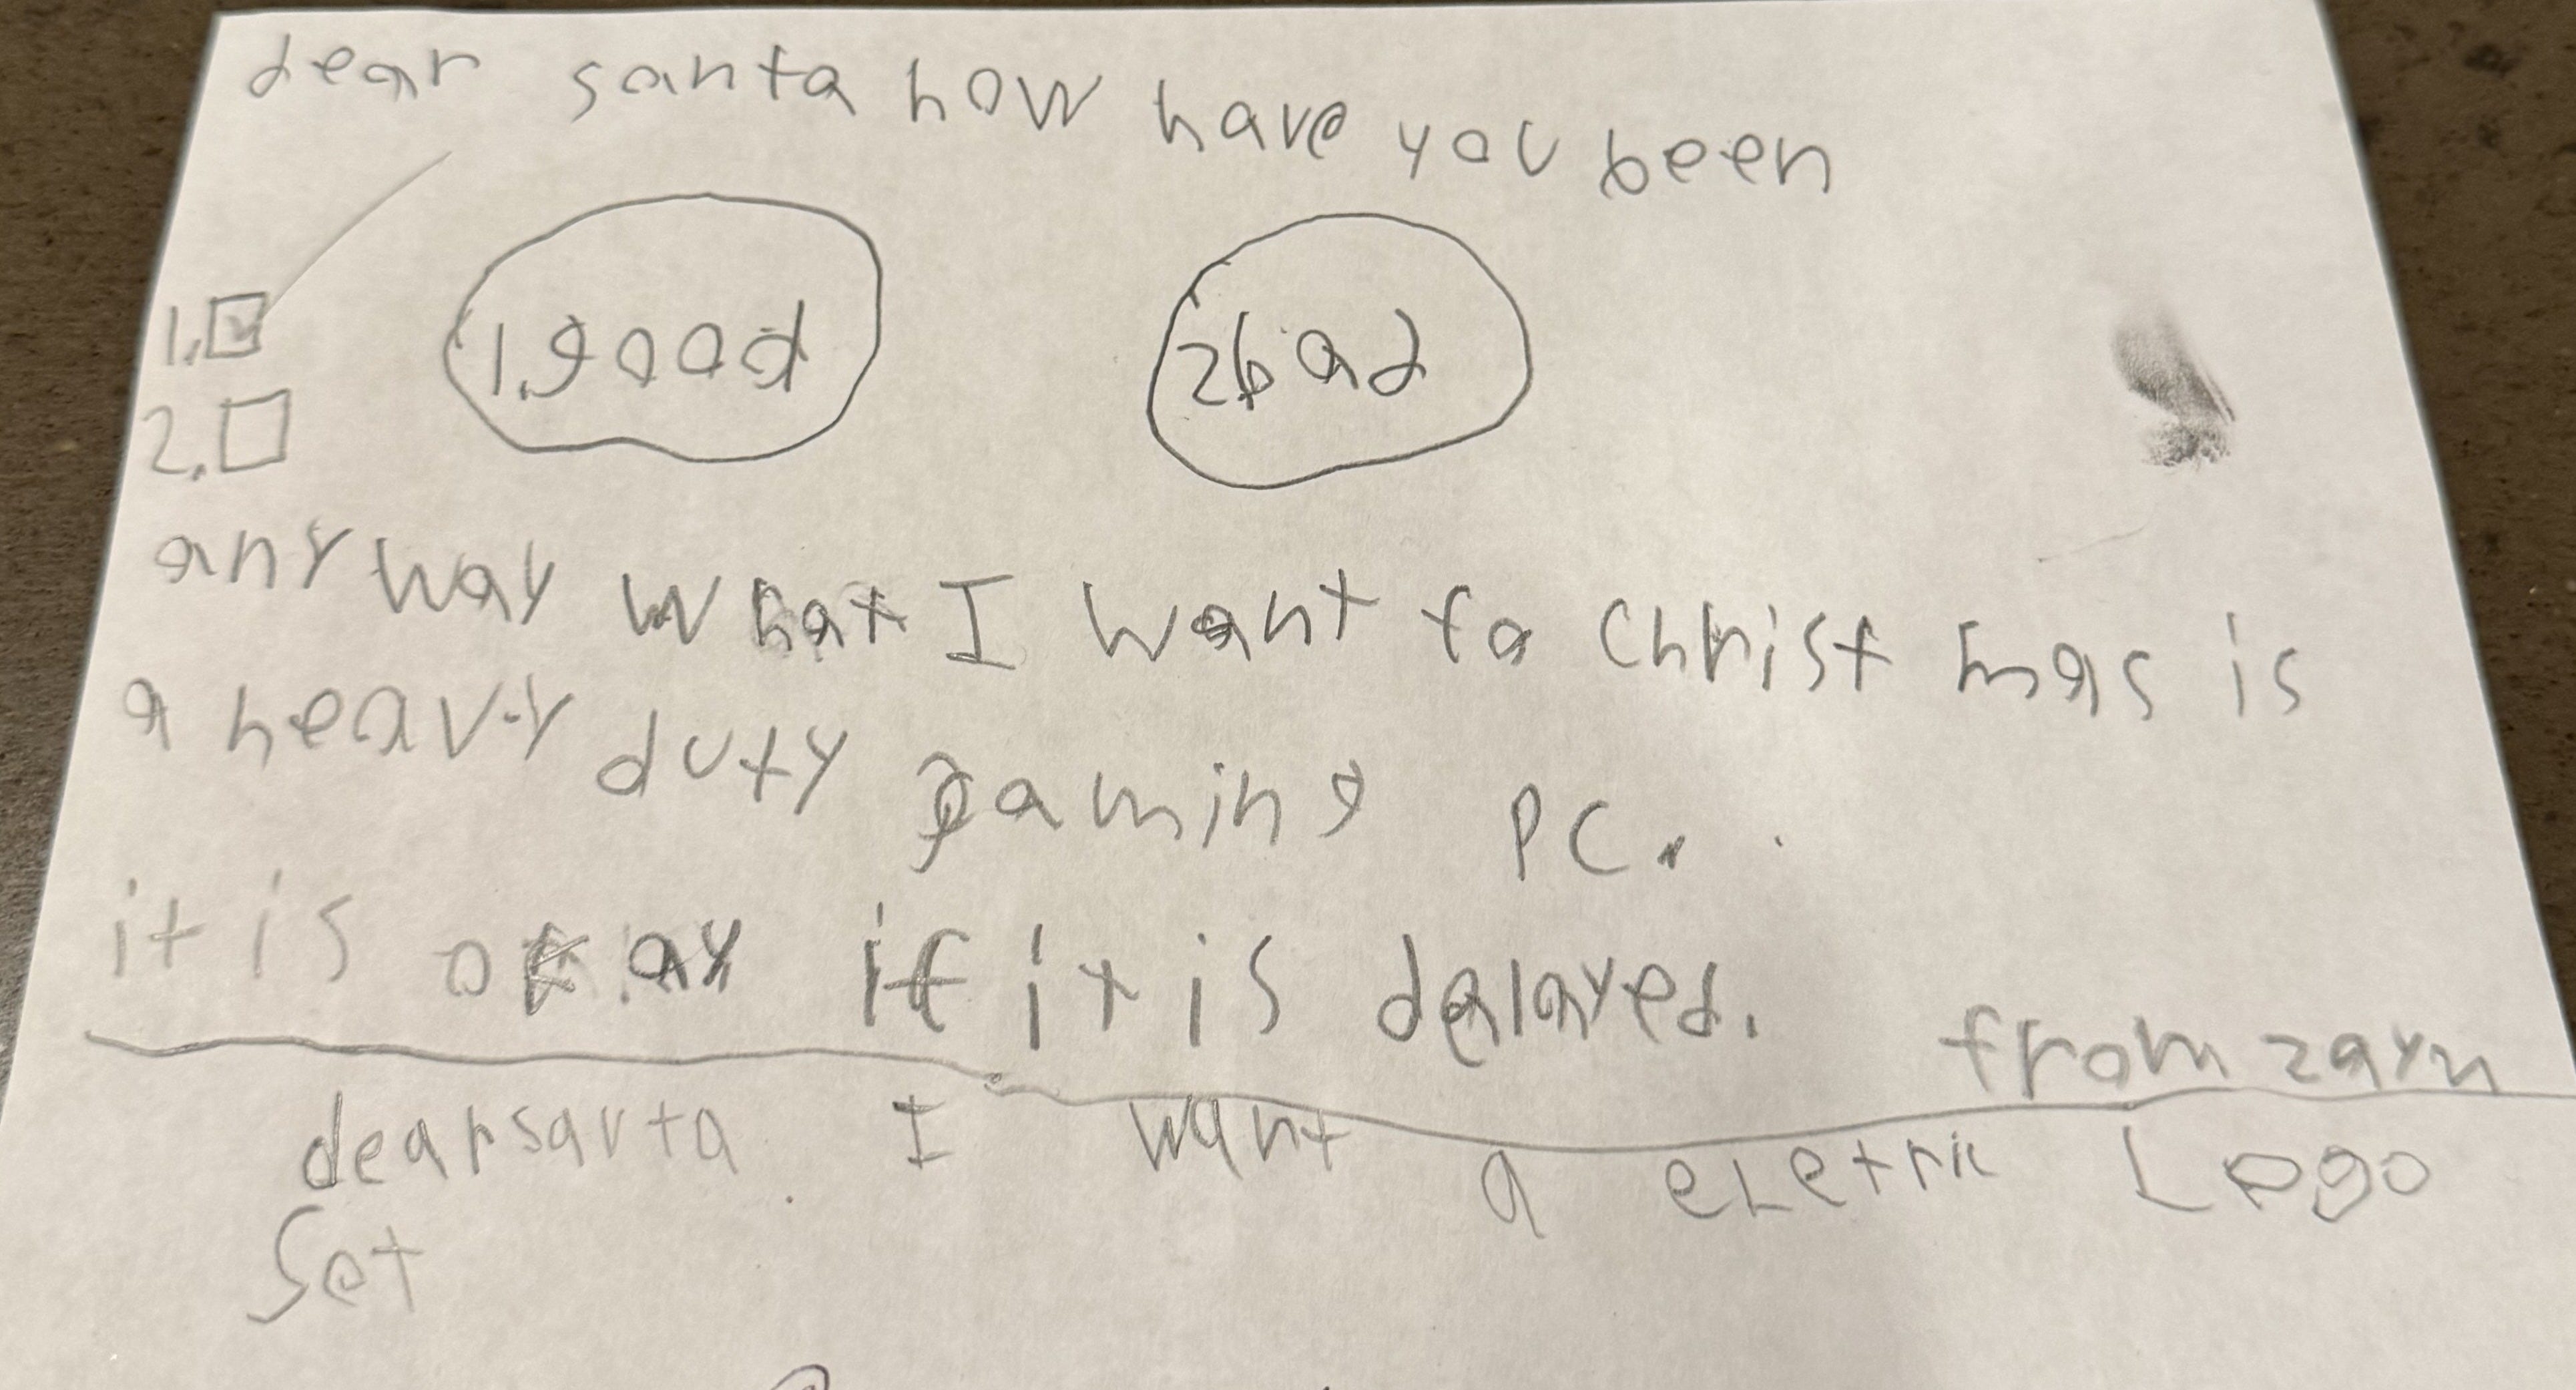 dear santa how have you been
1. 1.good 2bad
2.
anyway what I want fo christmas is
a heavy duty gaming PC.
it is okay if it is delayed.
from zayn
dear santa I want a eletric Lego
Set